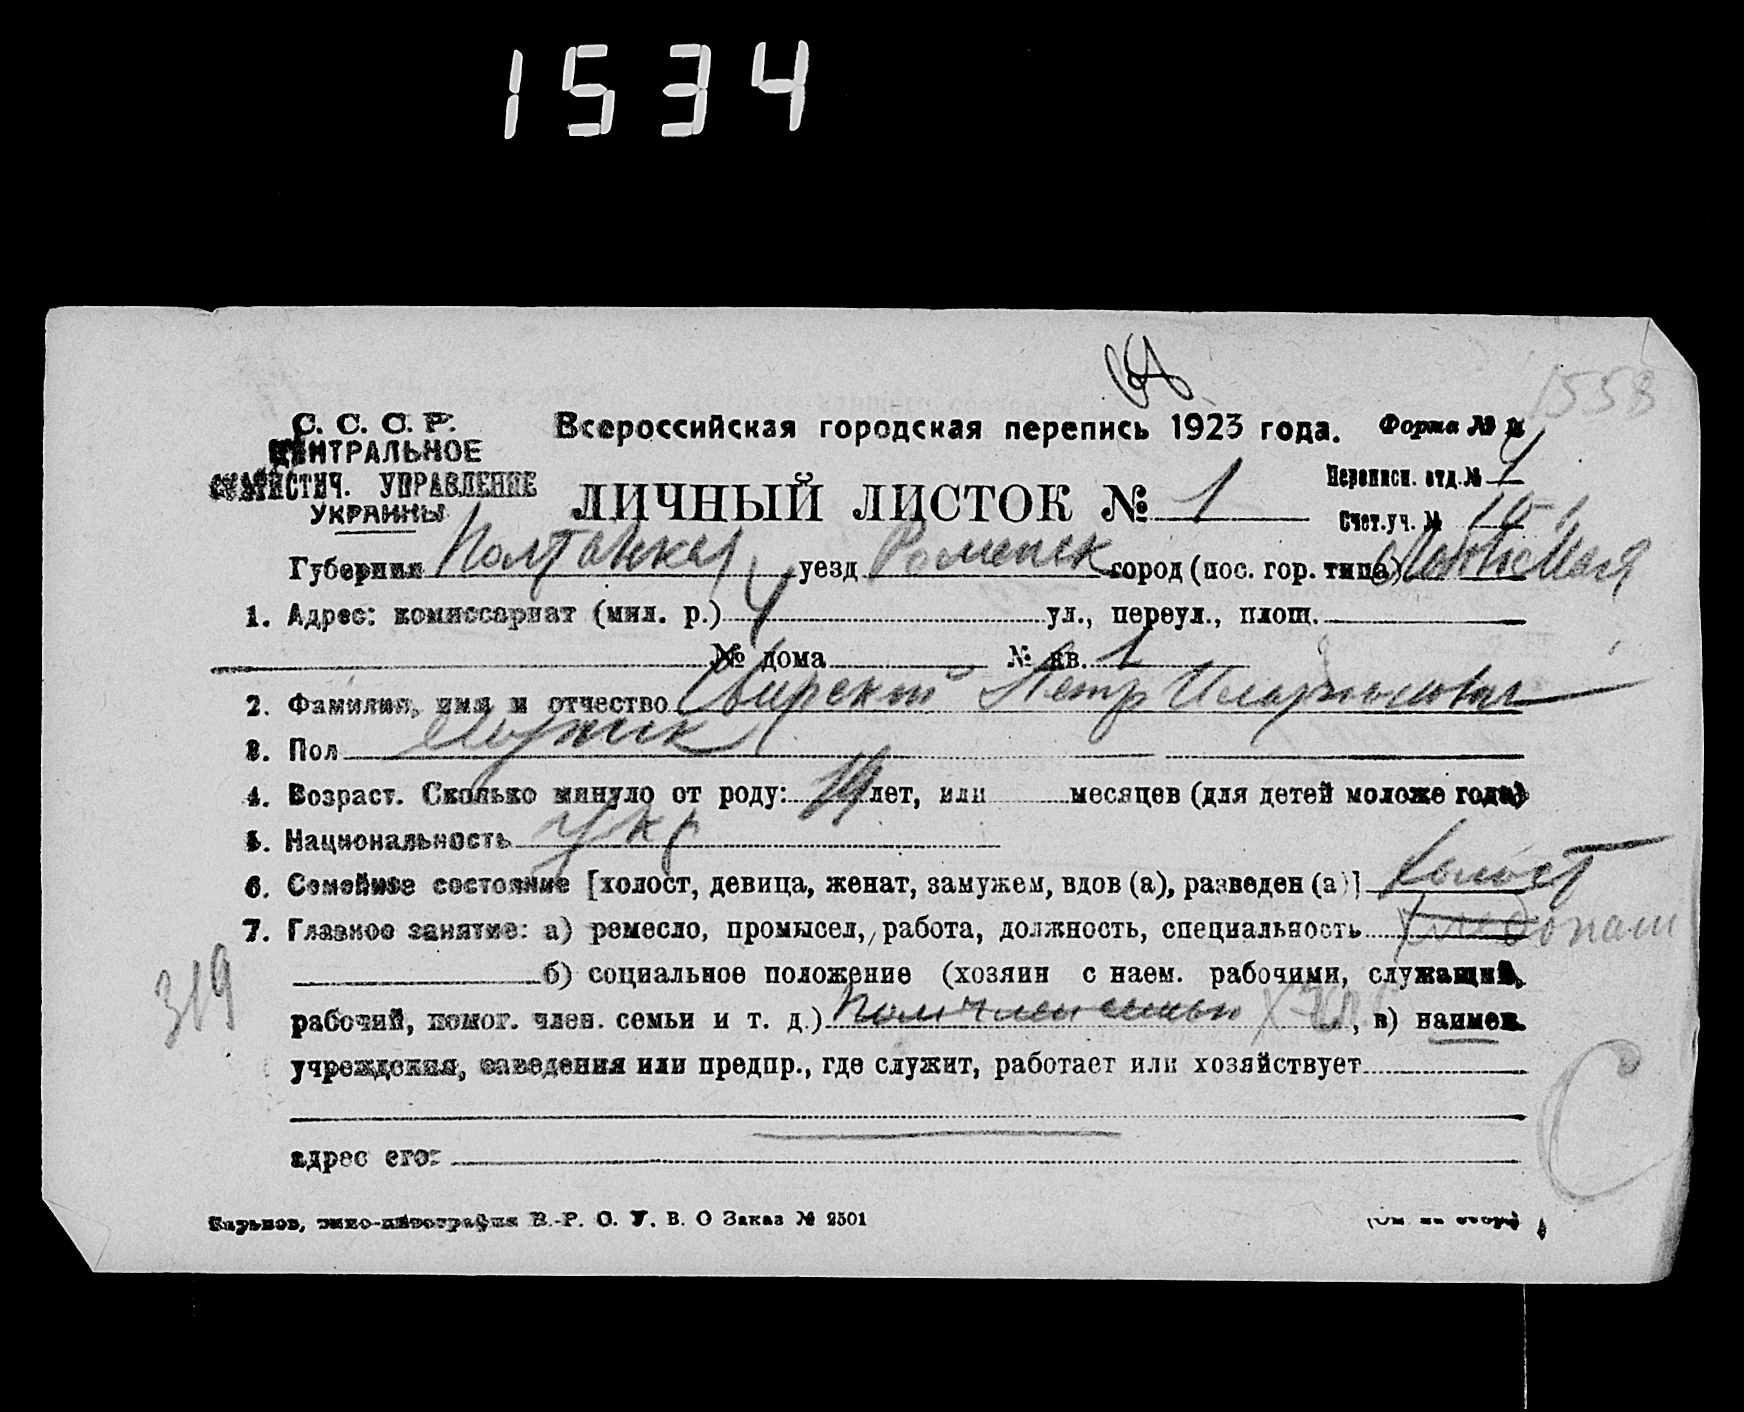 1534
1558
С. С. С. Р.
ЦЕНТРАЛЬНОЕ
СТАТИСТИЧ. УПРАВЛЕНИЕ
УКРАИНЫ
Всероссийская городская перепись 1923 года.
Форма №
Переписн. отд. № 4
ЛИЧНЫЙ ЛИСТОК № 1
Счет. уч. №
Губерния Полтавская уезд Роменск город (пос. гор. типа)
1. Адрес: комиссариат (мил. р.) 4 ул., переул., площ.
№ дома № кв. 1
2. Фамилия, имя и отчество Свирский Петр Иларионович
3. Пол Мужск
4. Возраст. Сколько минуло от роду: 19 лет, или месяцев (для детей моложе года)
5. Национальность Укр
6. Семейное состояние [холост, девица, женат, замужем, вдов (а), разведен (а)] холост
7. Главное занятие: а) ремесло, промысел, работа, должность, специальность хлебопаш
б) социальное положение (хозяин с наем. рабочими, служащий,
319
рабочий, помог. член. семьи и т. д.) пом член семьи, в) наимен.
учреждения, заведения или предпр., где служит, работает или хозяйствует
С
адрес его:
Харьков, типо-литография В.-Р. О. У. В. О Заказ № 2501